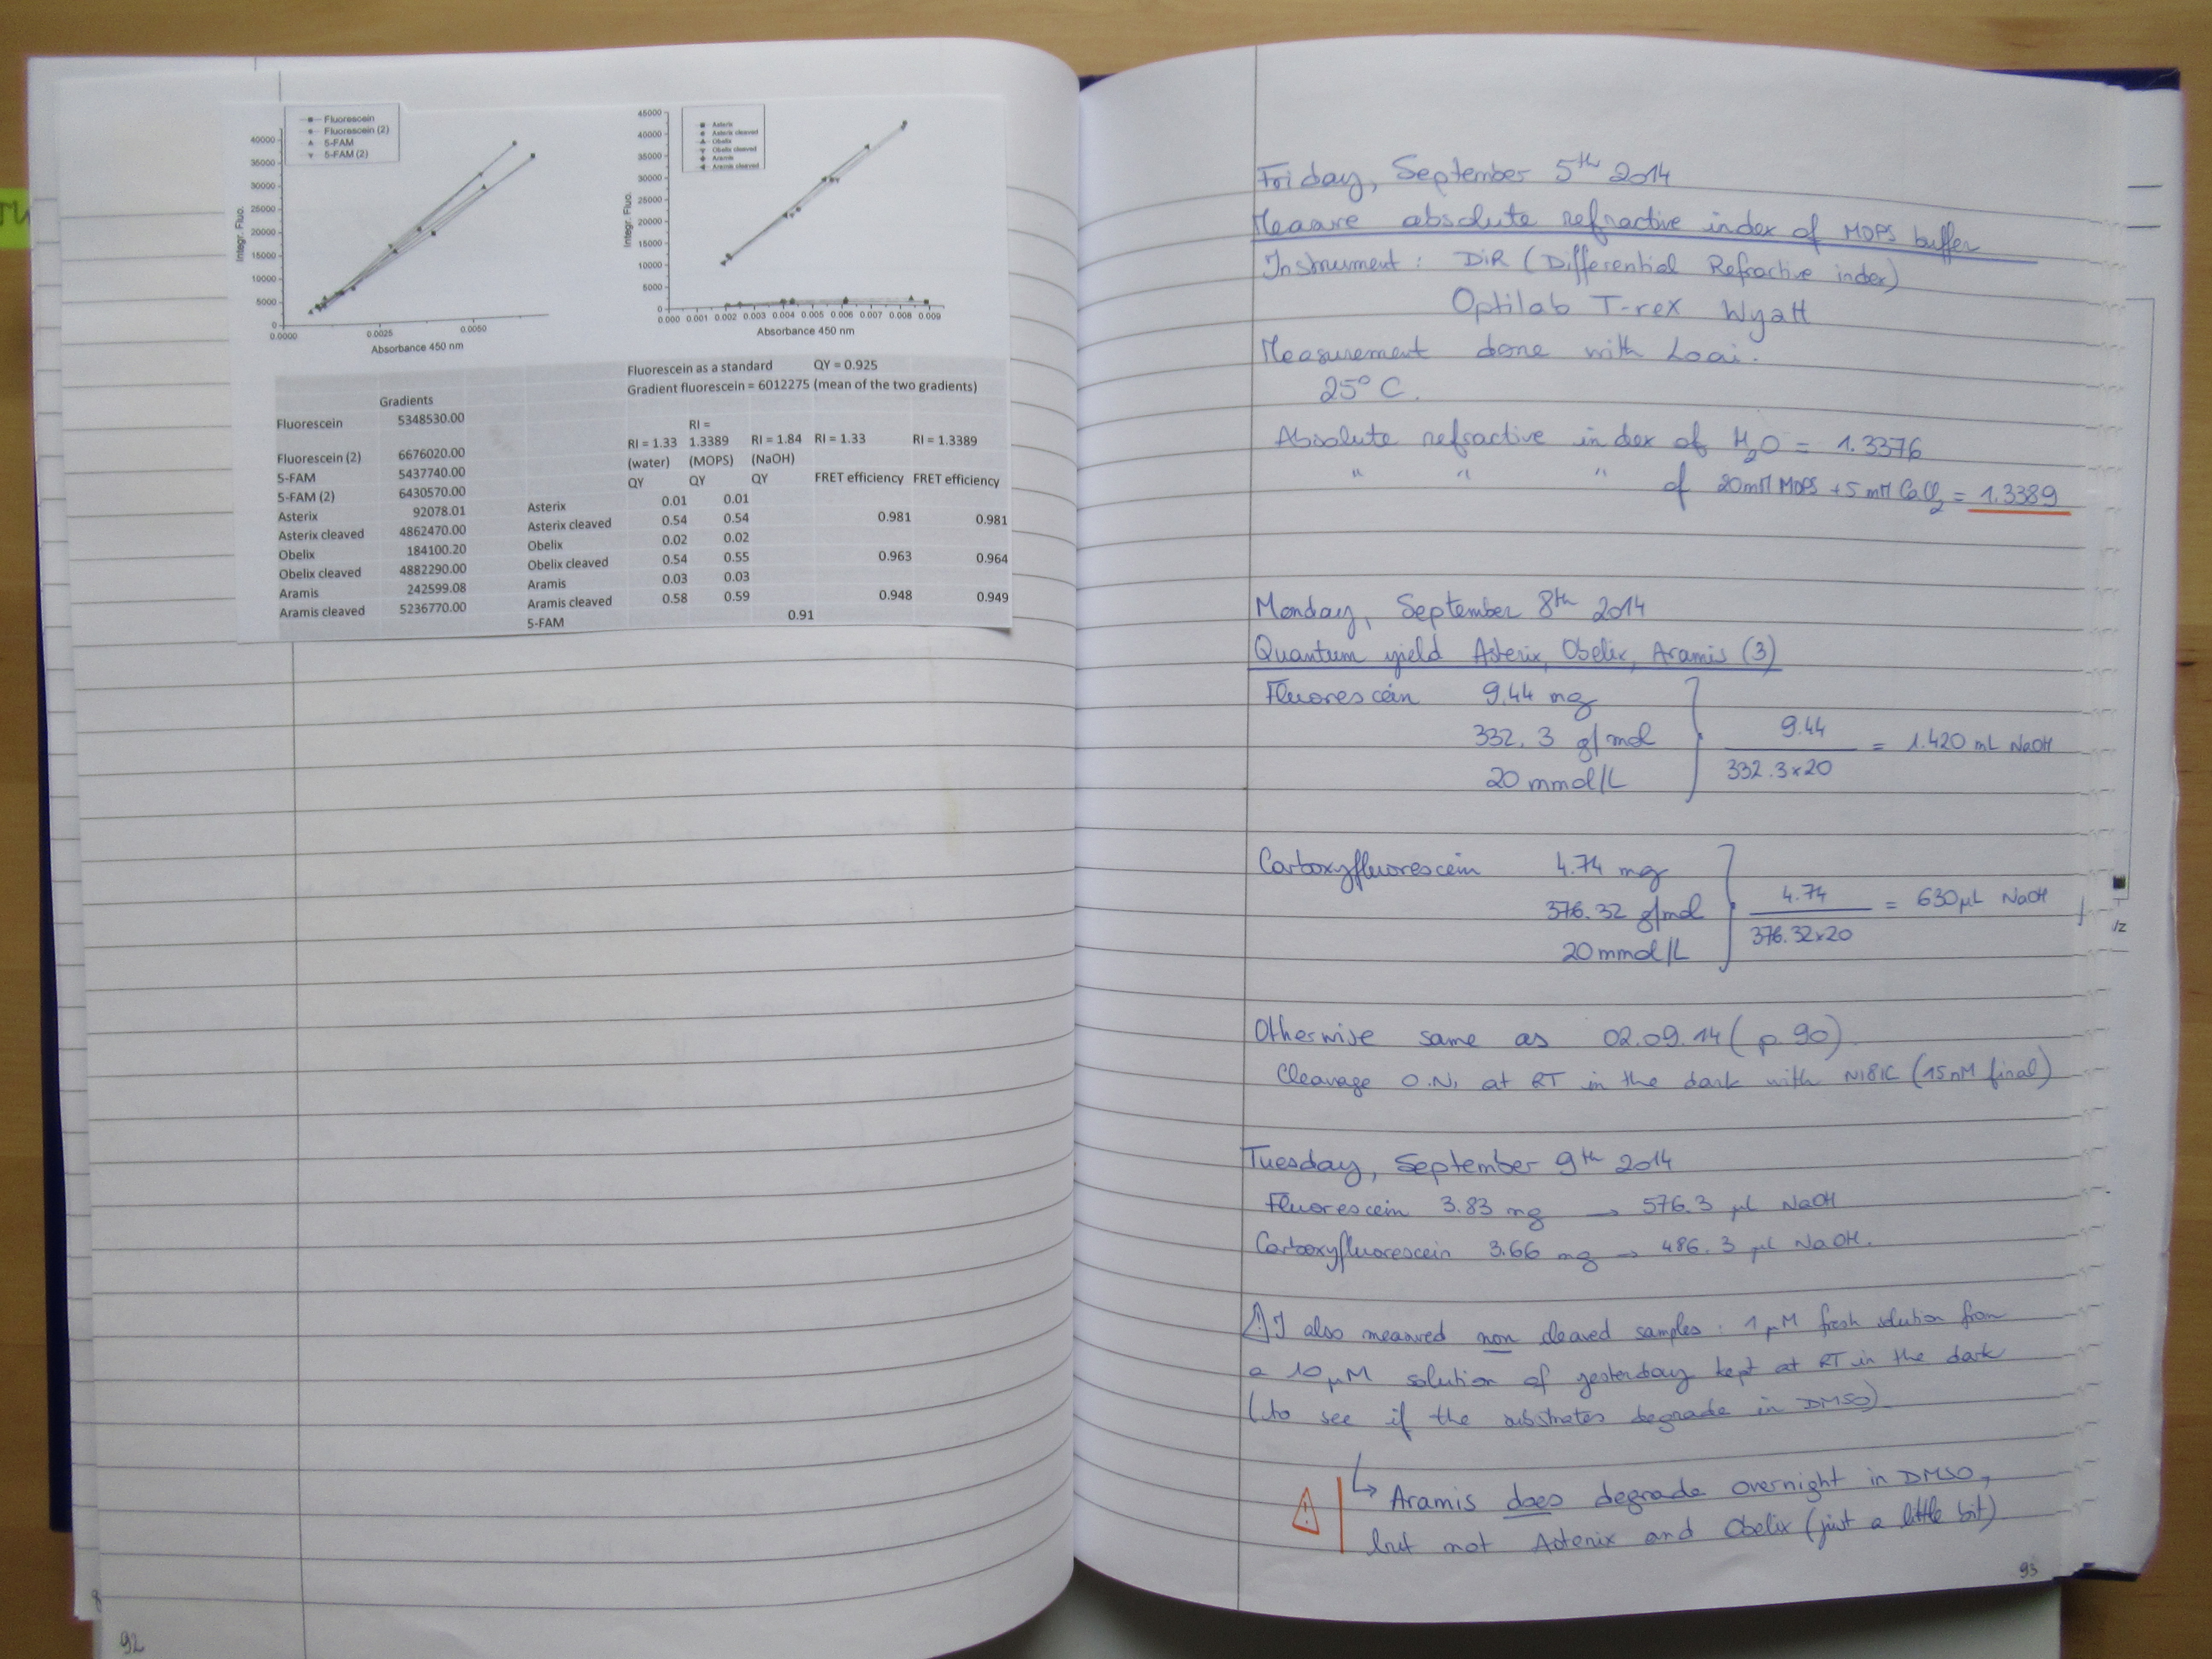 Fluorescein
Fluorescein (2)
5-FAM
5-FAM (2)
40000
35000
30000
25000
20000
15000
10000
5000
0
Integr. Fluo.
0.0000 0.0025 0.0050
Absorbance 450 nm
Asterix
Asterix cleaved
Obelix
Obelix cleaved
Aramis
Aramis cleaved
45000
40000
35000
30000
25000
20000
15000
10000
5000
Integr. Fluo.
0.000 0.001 0.002 0.003 0.004 0.005 0.006 0.007 0.008 0.009
Absorbance 450 nm
Gradients
Fluorescein 5348530.00
Fluorescein (2) 6676020.00
5-FAM 5437740.00
5-FAM (2) 6430570.00
Asterix 92078.01
Asterix cleaved 4862470.00
Obelix 184100.20
Obelix cleaved 4882290.00
Aramis 242599.08
Aramis cleaved 5236770.00
Fluorescein as a standard QY = 0.925
Gradient fluorescein = 6012275 (mean of the two gradients)
RI =
RI = 1.33 1.3389 RI = 1.84 RI = 1.33 RI = 1.3389
(water) (MOPS) (NaOH)
QY QY QY FRET efficiency FRET efficiency
Asterix 0.01 0.01
Asterix cleaved 0.54 0.54 0.981 0.981
Obelix 0.02 0.02
Obelix cleaved 0.54 0.55 0.963 0.964
Aramis 0.03 0.03
Aramis cleaved 0.58 0.59 0.948 0.949
5-FAM 0.91
92
Friday, September 5th 2014
Measure absolute refractive index of MOPS buffer
Instrument : DiR (Differential Refractive index)
Optilab T-rex Wyatt
Measurement done with Loai.
25° C.
Absolute refractive index of H2O = 1.3376
" " " of 20mM MOPS + 5 mM CaCl2 = 1.3389
Monday, September 8th 2014
Quantum yield Asterix, Obelix, Aramis (3)
Fluorescein 9.44 mg
332.3 g/mol
20 mmol/L
9.44 / 332.3x20 = 1.420 mL NaOH
Carboxyfluorescein 4.74 mg
376.32 g/mol
20 mmol/L
4.74 / 376.32x20 = 630µL NaOH
Otherwise same as 02.09.14 (p. 90)
Cleavage O.N. at RT in the dark with N18IC (15nM final)
Tuesday, September 9th 2014
Fluorescein 3.83 mg → 576.3 µL NaOH
Carboxyfluorescein 3.66 mg → 486.3 µL NaOH.
⚠ I also measured non cleaved samples : 1 µM fresh solution from
a 10 µM solution of yesterday kept at RT in the dark
(to see if the substrates degrade in DMSO)
↳ Aramis does degrade overnight in DMSO,
but not Asterix and Obelix (just a little bit)
93